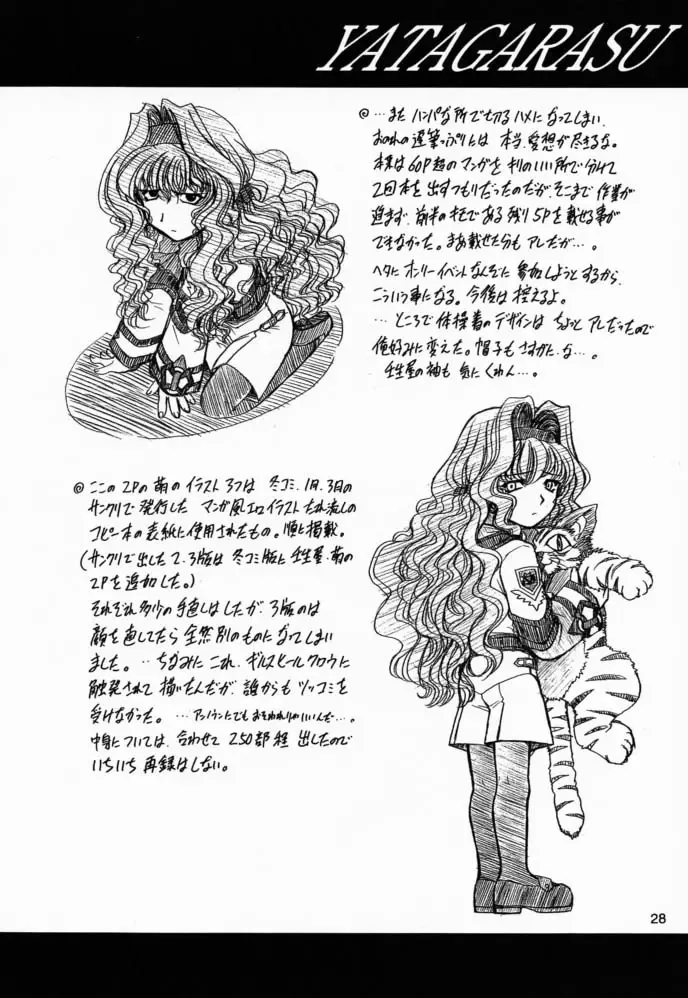 YATAGARASU
◎ …また ハンパな所で切るハメになってしまい、
おのれの遅筆っぷりには 本当、愛想が尽きるな。
本来は60P超のマンガを キリのいい所で分けて
2回本を出すつもりだったのだが、そこまで作業が
進まず、前半のキモである残り5Pを載せる事が
できなかった。まあ載せた分も アレだが…。
ヘタに オンリーイベントなんぞに 参加しようとするから
こういう事になる。今後は控えるよ。
… ところで体操着のデザインは ちょっと アレだったので
俺好みに変えた。帽子も さすがに、な…。
壬生屋の袖も 気にくわん…。
◎ ここの2Pの萌のイラスト3つは 冬コミ、1月、3月の
サンクリで発行した マンガ風エロイラスト たれ流しの
コピー本の表紙に使用されたもの。順に掲載。
(サンクリで出した2、3版は 冬コミ版に 壬生屋、萌の
2Pを追加した。)
それぞれ多少の手直しはしたが、3版のは
顔を直してたら 全然別のものになってしまい
ました。…ちなみに これ、ギルスヒールクロウに
触発されて 描いたんだが、誰からも ツッコミを
受けなかった。…アンノウンにでも おそわれりゃいいんだ…。
中身については、合わせて 250部程 出したので
いちいち 再録はしない。
28